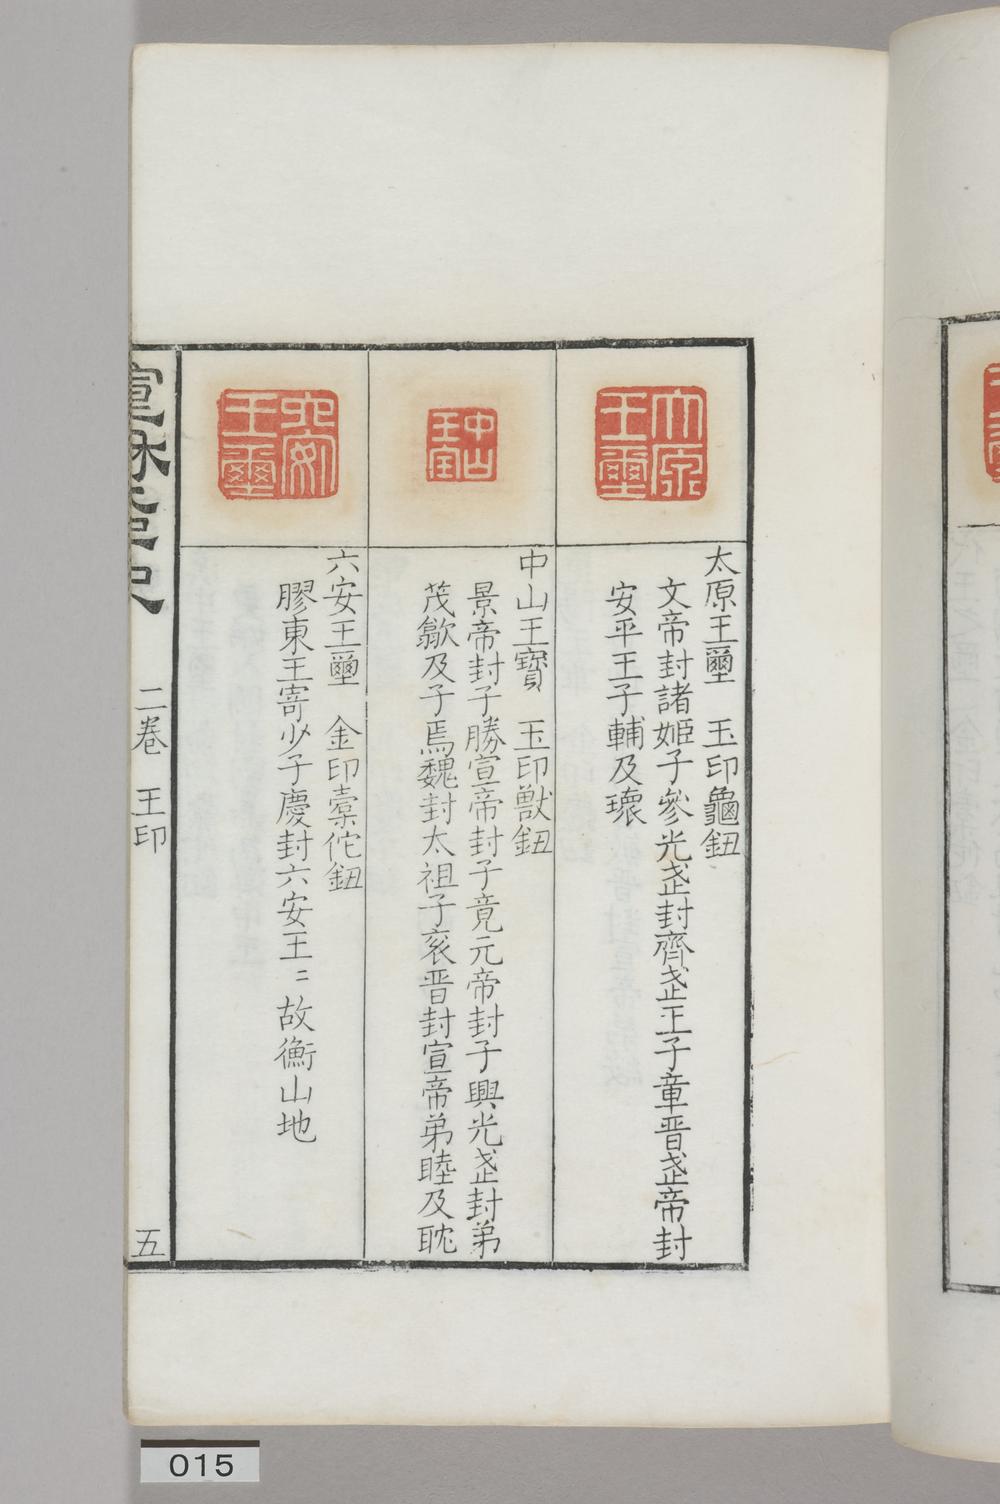 太原王璽
太原王璽　玉印龜鈕
文帝封諸姬子參光武封齊武王子章晋武帝封
安平王子輔及瓌
中山王宝
中山王寶　玉印獸鈕
景帝封子勝宣帝封子竟元帝封子興光武封弟
茂歙及子焉魏封太祖子衮晋封宣帝弟睦及耽
六安王璽
六安王璽　金印橐佗鈕
膠東王寄少子慶封六安王〻故衡山地
宣和集古印史　二卷　王印　五
015